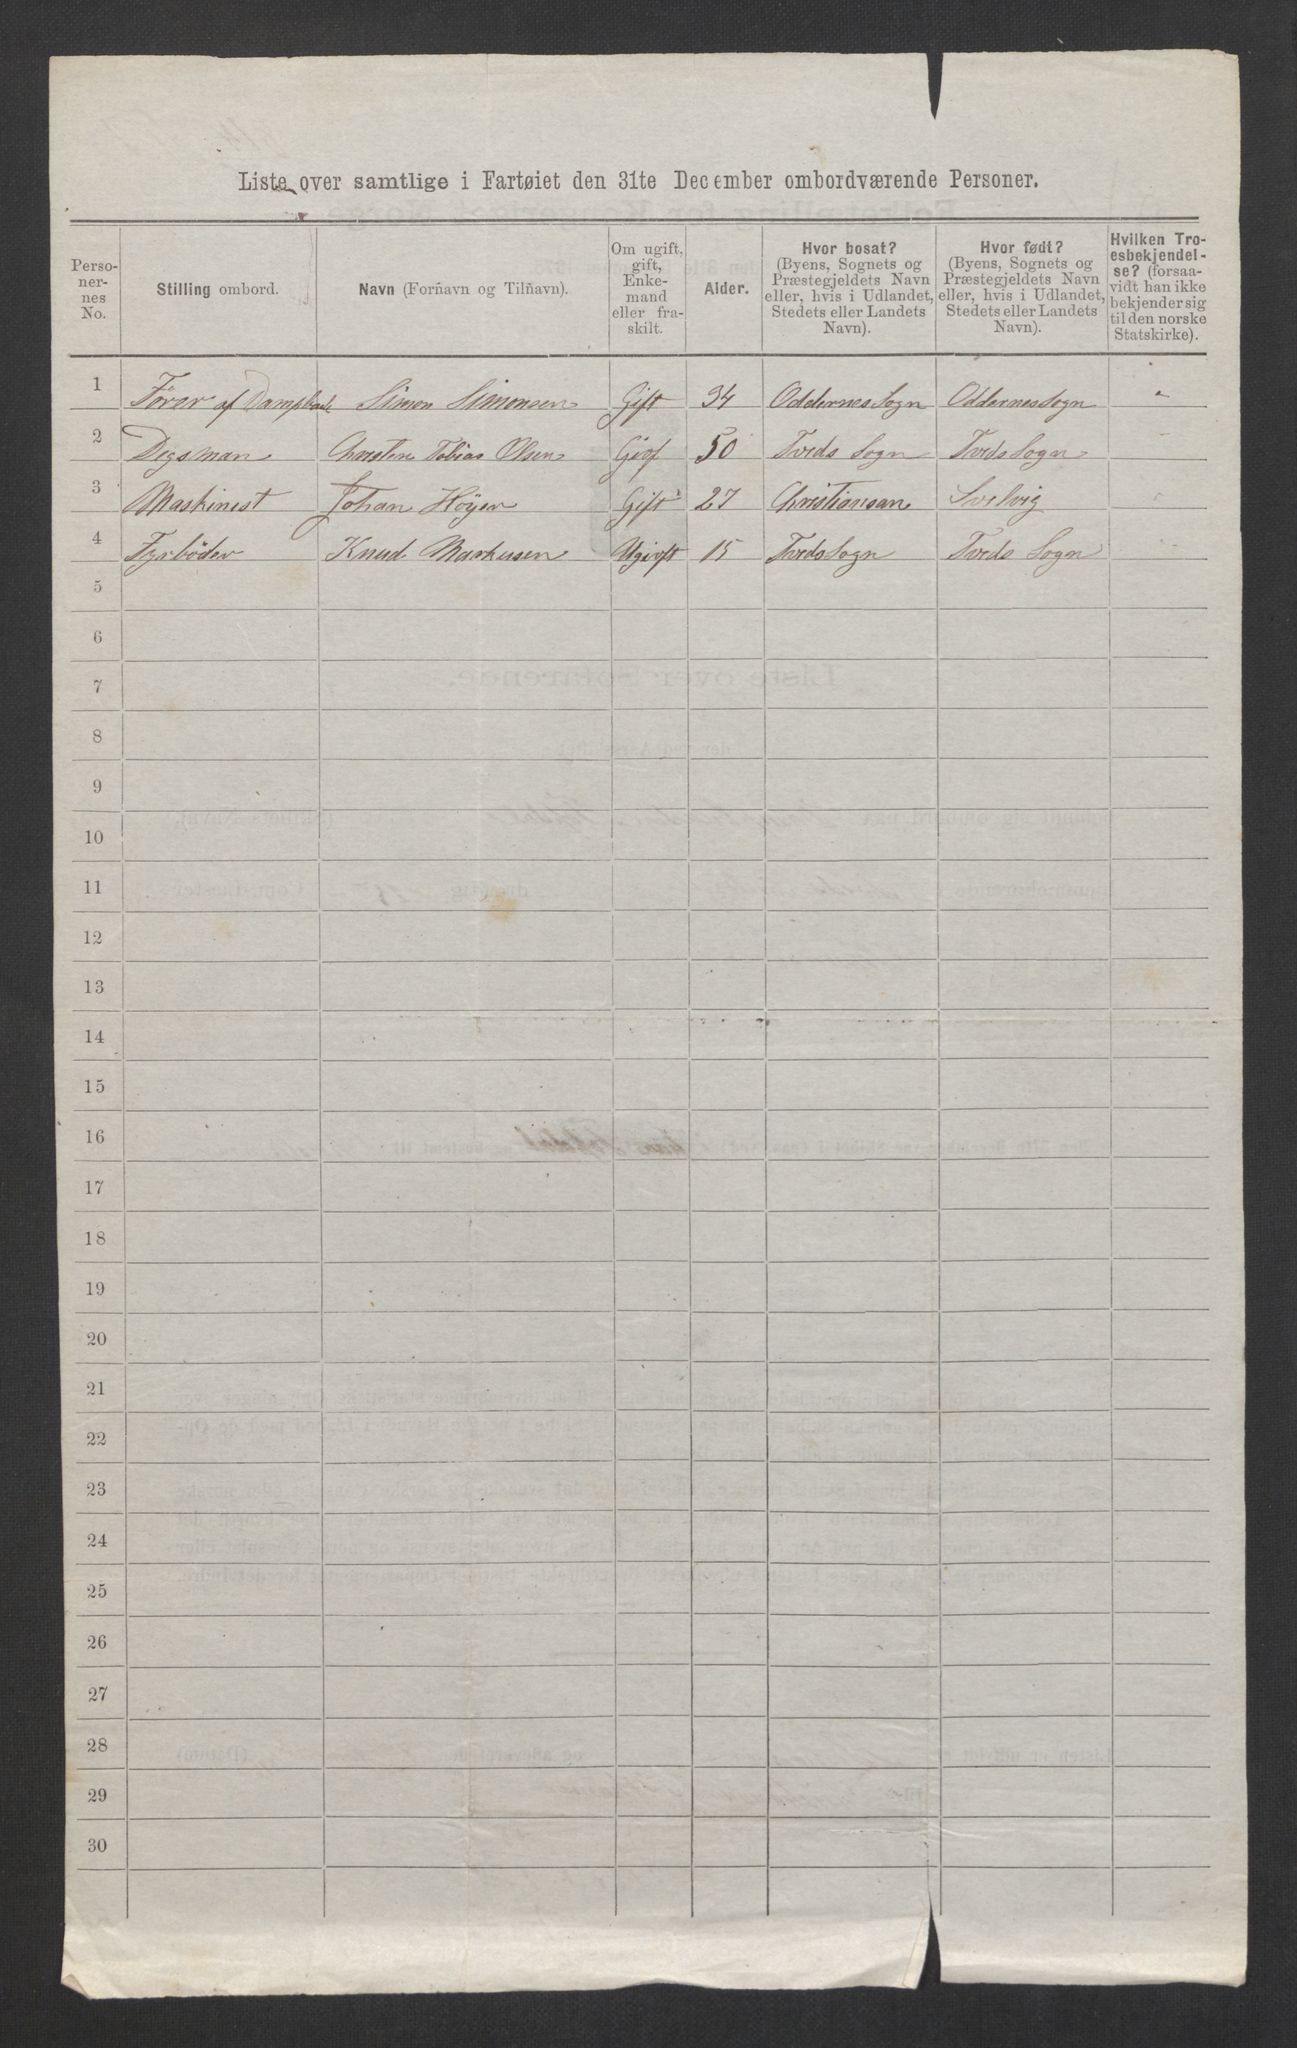 Liste over samtlige i Fartøiet den 31te December ombordværende Personer.
Perso-
ner-
nes
No.
Stilling ombord.
Navn (Forñavn og Tilñavn).
Om ugift,
gift,
Enke-
mand
eller fra-
skilt.
Alder.
Hvor bosat?
(Byens, Sognets og
Præstegjeldets Navn
eller, hvis i Udlandet,
Stedets eller Landets
Navn).
Hvor født?
(Byens, Sognets og
Præstegjeldets Navn
eller, hvis i Udlandet,
Stedets eller Landets
Navn).
Hvilken Tro-
esbekjendel-
se? (forsaa-
vidt han ikke
bekjender sig
til den norske
Statskirke).
1 Fører af Simon Simonsen Gift 34 Oddernes Sogn Oddernes Sogn "
2 Degsman Christen Tobias Olsen Givt 50 Tveds Sogn Tveds Sogn "
3 Maskinest Johan Höyer Gift 27 Christiansan Svelvig "
4 Fyrböder Knud Markusen Ugivft 15 Tveds Sogn Tveds Sogn "
5
6
7
8
9
10
11
12
13
14
15
16
17
18
19
20
21
22
23
24
25
26
27
28
29
30